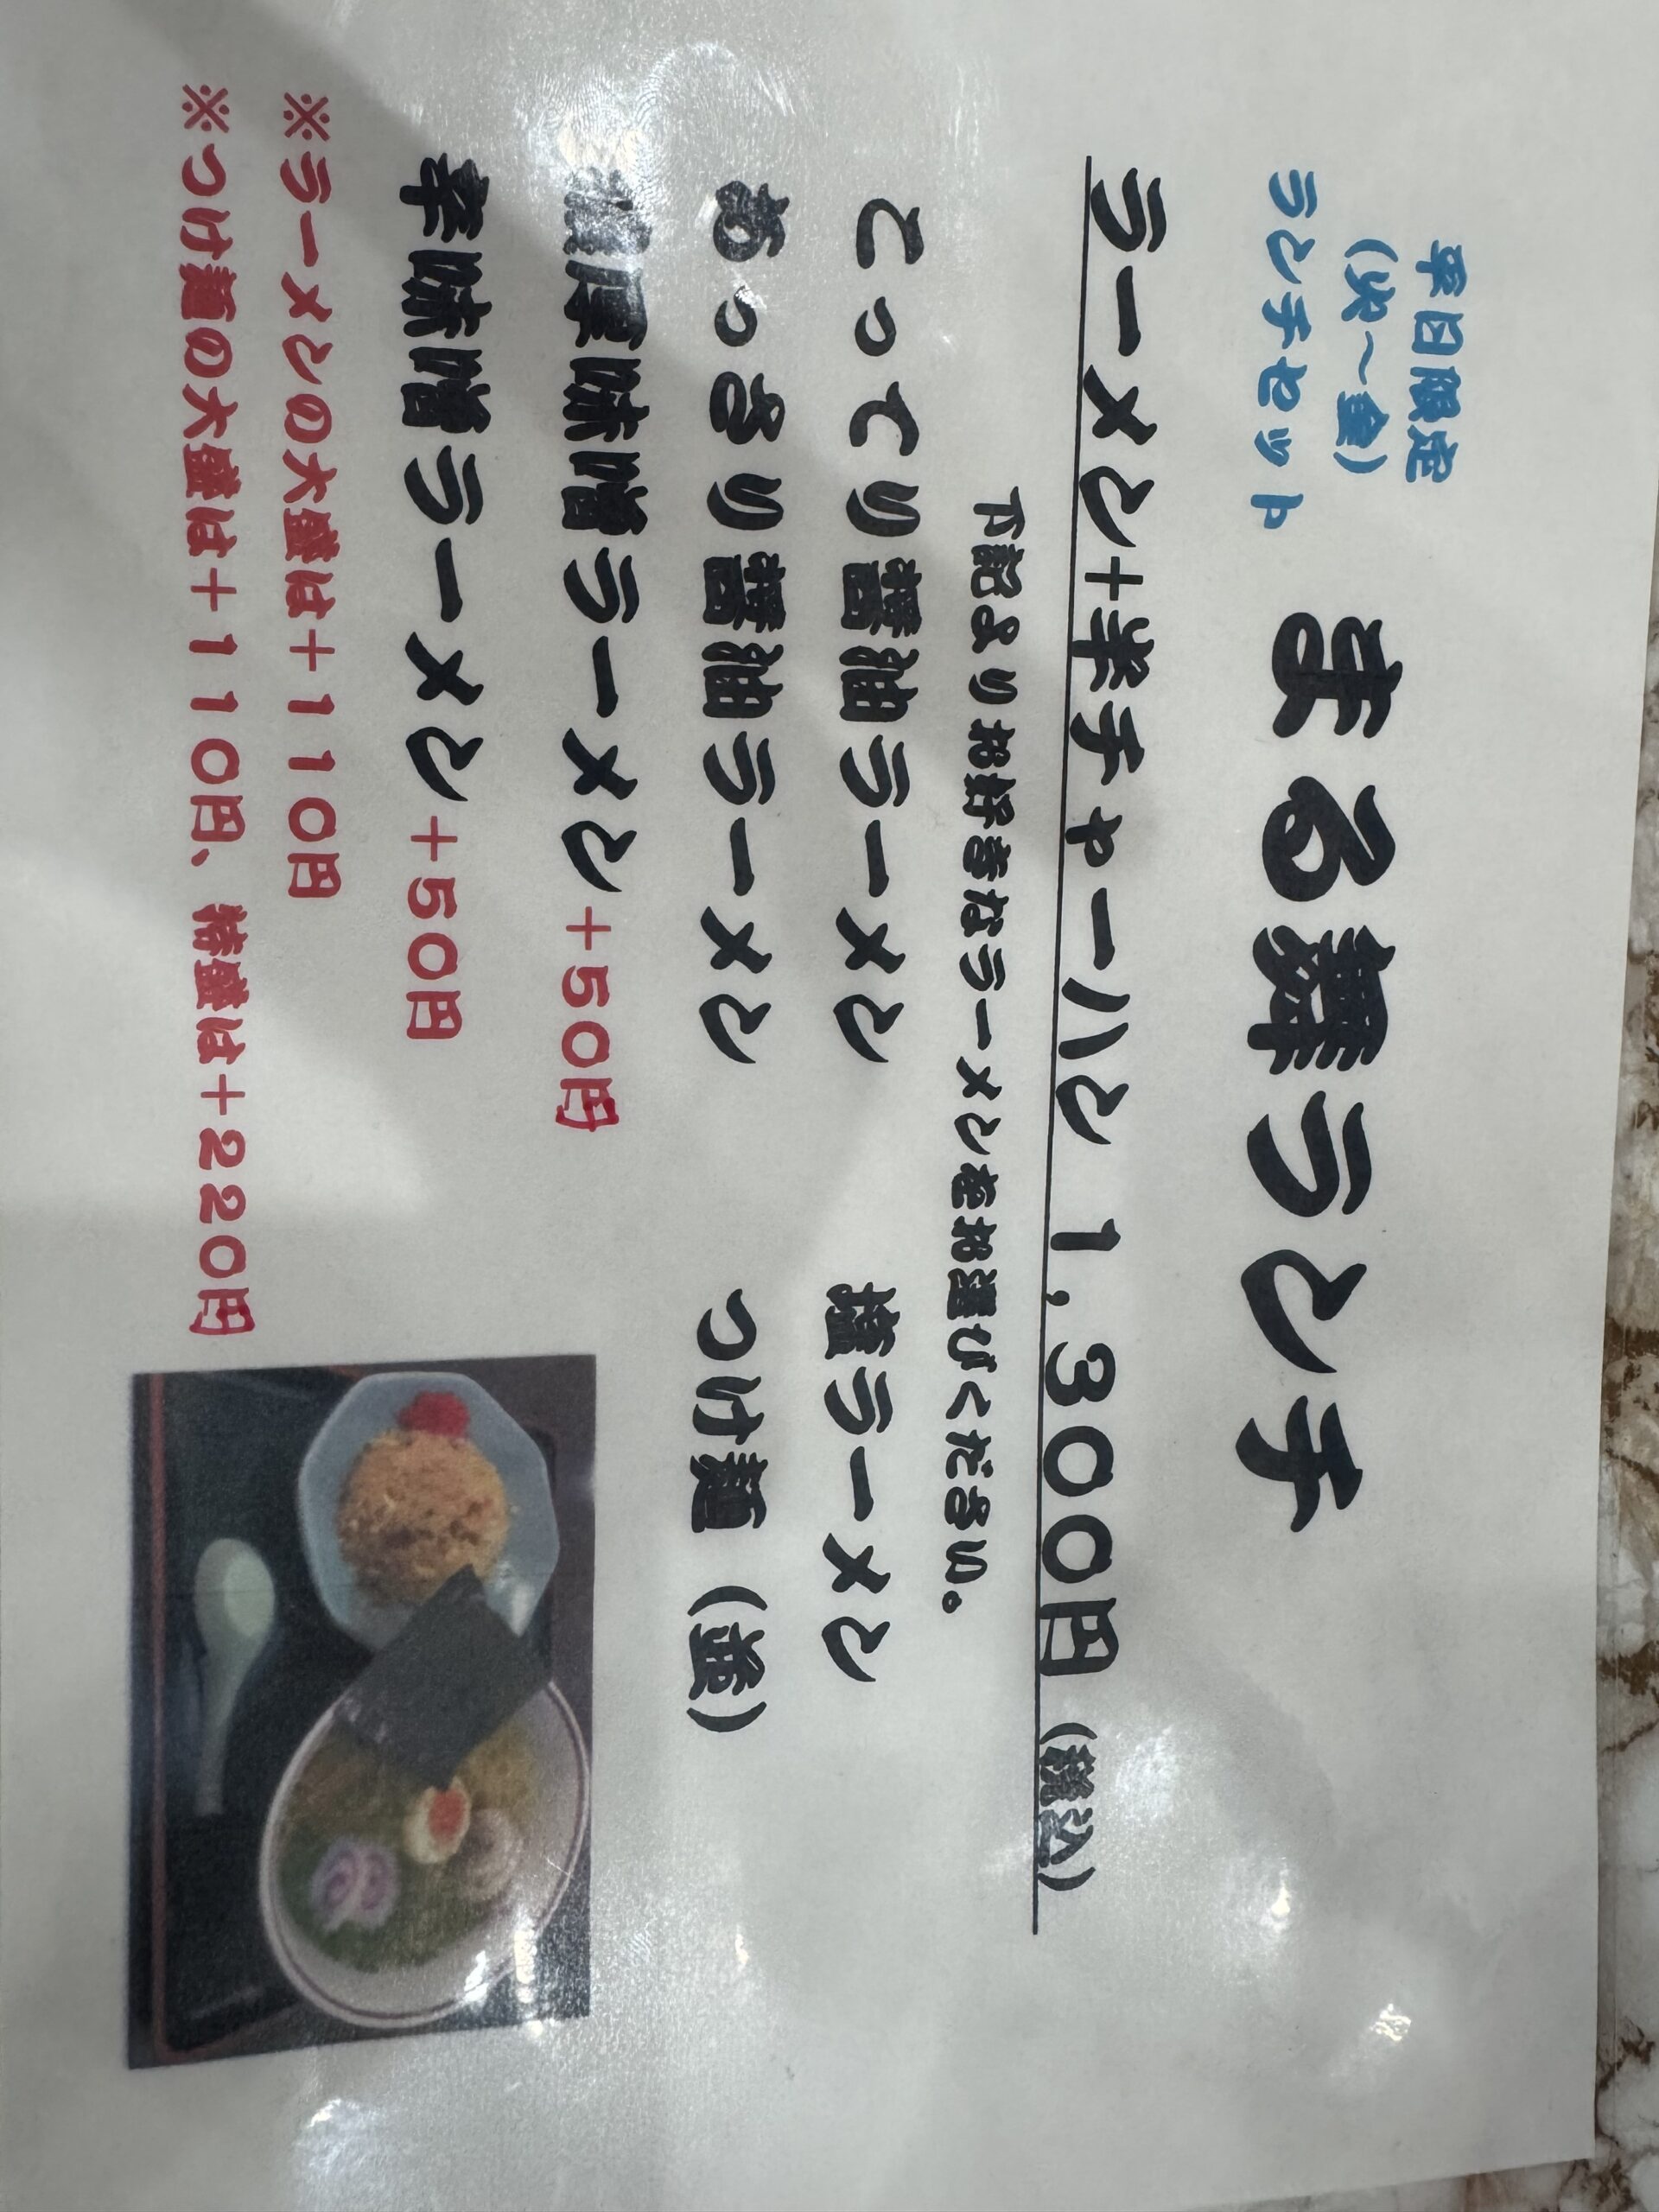 平日限定
(火～金)
ランチセット
まる舞ランチ
ラーメン+半チャーハン 1,300円 (税込)
下記よりお好きなラーメンをお選びください。
こってり醤油ラーメン 塩ラーメン
あっさり醤油ラーメン つけ麺 (並)
濃厚味噌ラーメン+50円
辛味噌ラーメン+50円
※ラーメンの大盛は+110円
※つけ麺の大盛は+110円、特盛は+220円